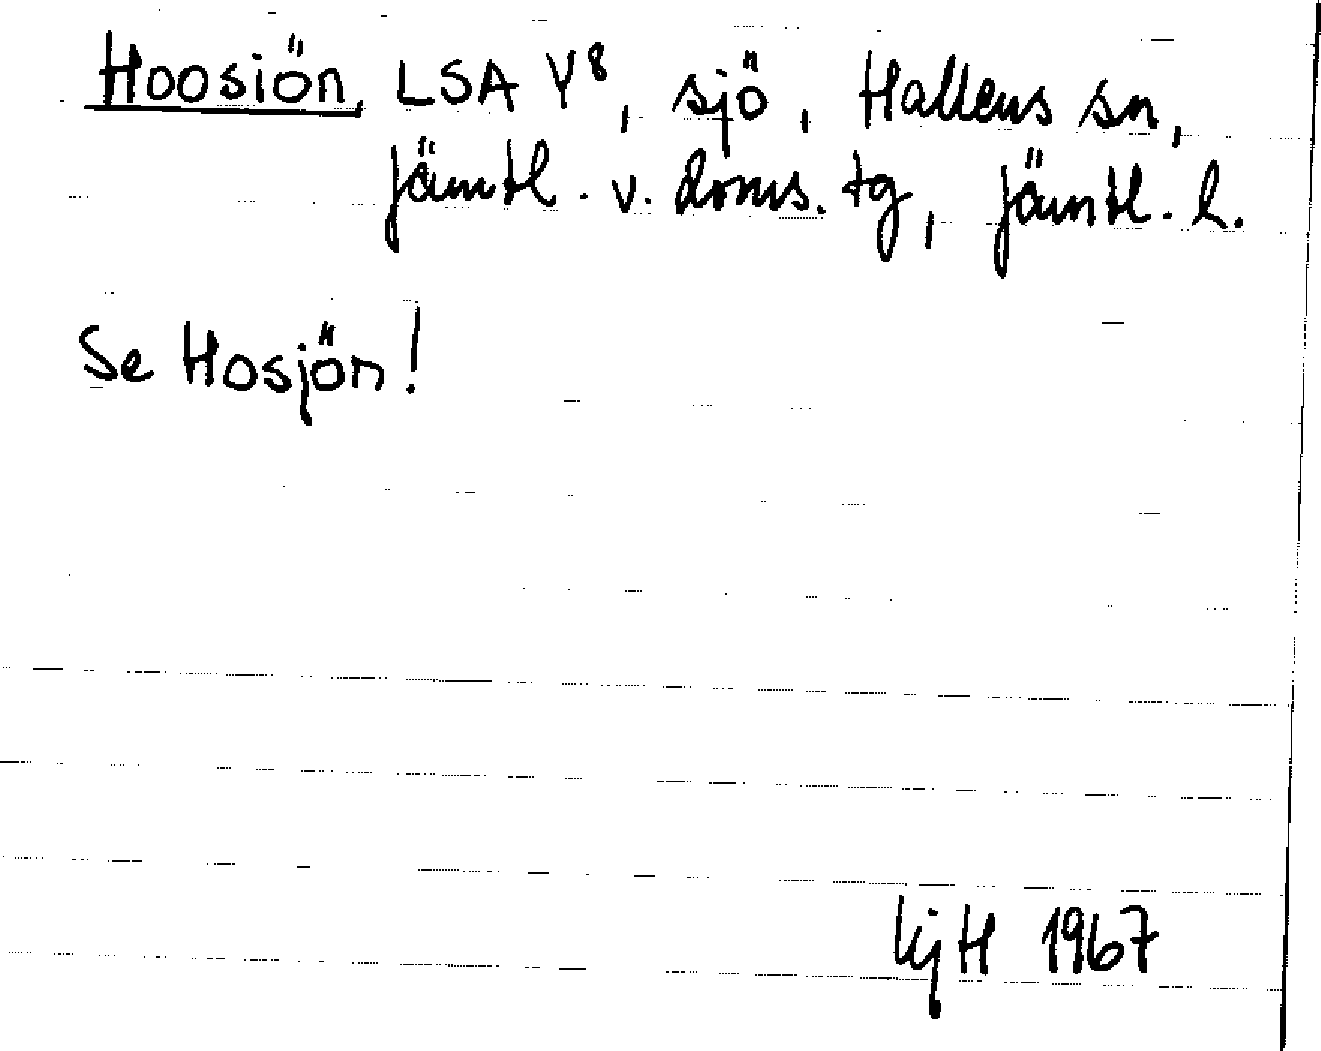 Hoosiön, LSA Y⁸, sjö, Hallens sn,
Jämtl. v. doms. tg, Jämtl. l.
Se Hosjön!
KjH 1967